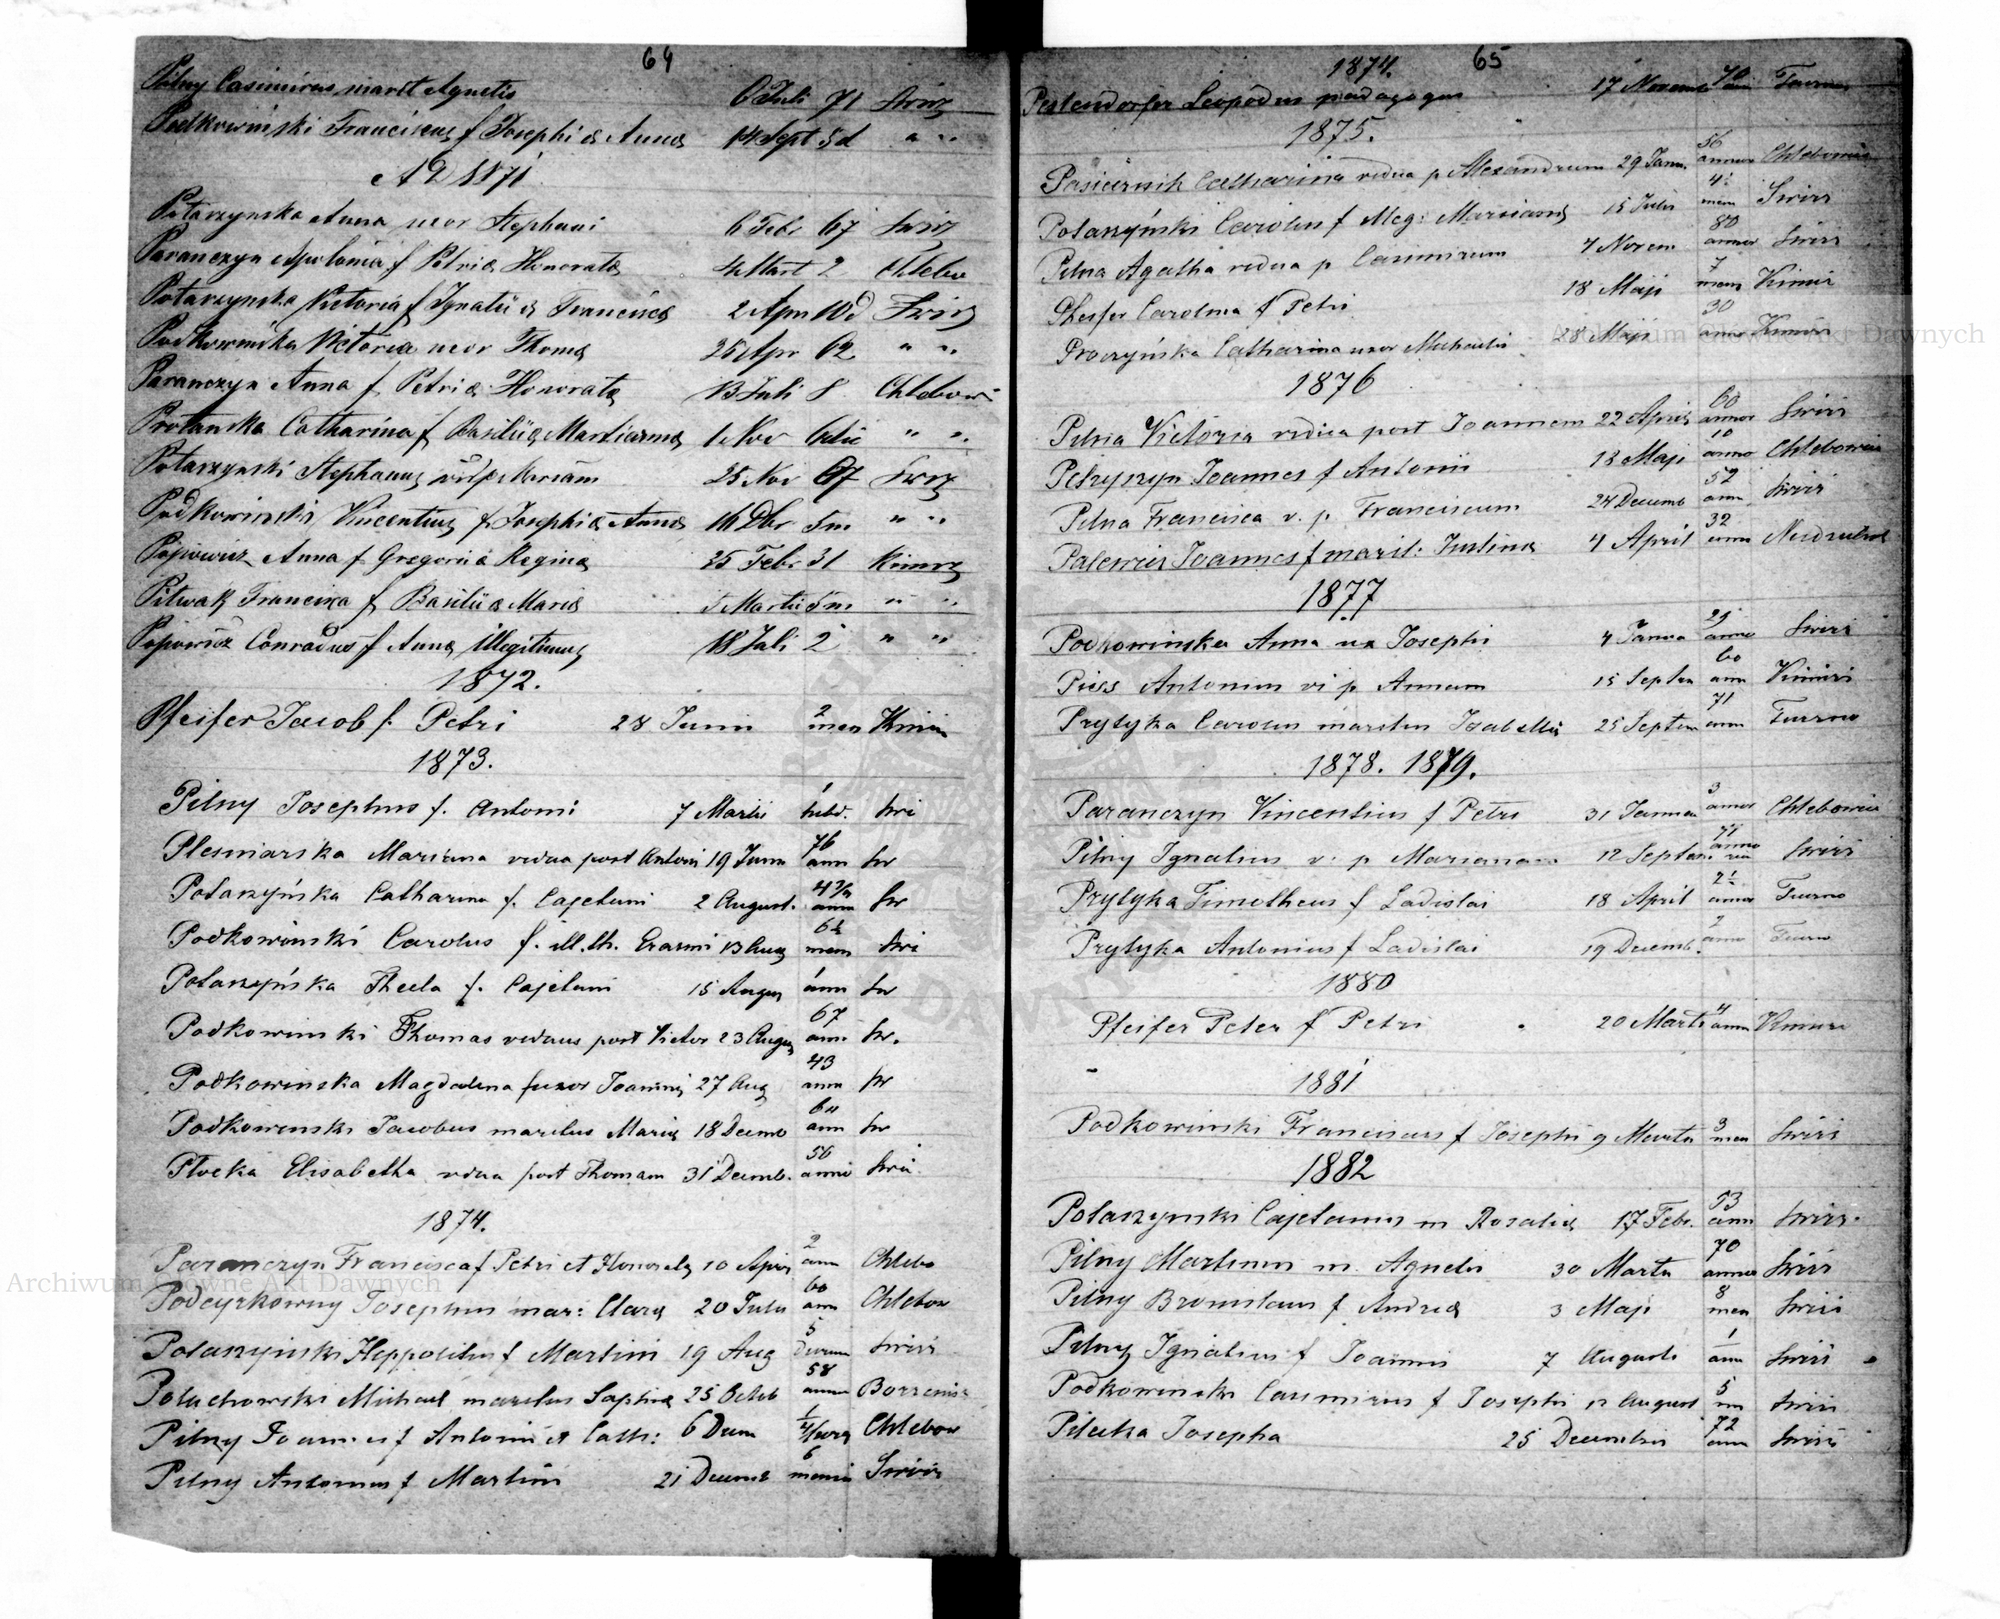 64
Pilny Casimirus marit Agnetis 6 Juli 71 Swirz
Podkowinski Franciscus f Josephi & Anna 14 Sept 3d " "
A D 1871
Potarzynska Anna uxor Stephani 6 Febr 67 Swirz
Paranczyn Apolonia f Petri & Honorata 4 Mart 2 Chlebo
Potarzynska Victoria f Ignatii & Francisca 2 Apr 10d Swirz
Podkowinska Victoria uxor Thoma 25 Apr 62 " "
Paranczyn Anna f Petri & Honorata 13 Juli 8 Chlebowi
Catharina f Basilii & Marianna 1 Nov " "
Potarzynski Stephanus vid p Mariam 25 Nov 67 Swirz
Podkowinski Vincentius f Josephi & Anna 16 Dbr 5m " "
Popowicz Anna f Gregorii & Regina 25 Febr 31 Kimirz
Pitwak Francisca f Basilii & Maria 5 Martii 5m " "
Popowicz Conradus f Anna illegitimus 18 Juli 2 " "
1872.
Pfeifer Jacob f. Petri 28 Junii 2 men Kimir
1873.
Pilny Josephus f. Antoni 7 Martii 1 hebd. Swi
Plesniarska Marianna vidua post Antoni 19 Junii 76 ann Sw
Potarzyńska Catharina f. Cajetani 2 August. ann Sw
Podkowinski Carolus f. ill. th. Erasmi 13 Aug 6½ mens Swi
Potarzyńska Thecla f. Cajetani 15 Augus 1 ann Sw
Podkowinski Thomas viduus post Victor 23 Augus 67 ann. Sw.
Podkowinska Magdalena f uxor Joannis 27 Aug 43 ann Sw
Podkowinski Jacobus maritus Maria 18 Decemb 60 ann Sw
Płocka Elisabetha vidua post Thomam 31 Decemb. 56 anni Swi.
1874.
Paranczyn Francisca f Petri et Honorata 10 April 2 ann Chlebo
Josephus mar: Clara 20 Julii 60 ann Chlebow
Potarzyński Hyppolitus f Martini 19 Aug 5 dierum Swirz
Potuchowski Michael maritus Sophia 25 Octob 58 annor
Pilny Joannes f Antonii et Cath: 6 Decem Chlebow
Pilny Antonius f Martini 21 Decemb 6 mensis Swirz
1874. 65
Leopoldus pedagogus 17 Novemb 70 ann
1875.
Catharina vidua p Alexandrum 29 Janu. 56 annor Chlebowic
Potarzyński Carolus f Mariana 15 Julii 4½ men Swirz
Pilna Agatha vidua p Casimirum 7 Novem 80 annor Swirz
Pfeifer Carolina f Petri 18 Maji 7 mens Kimir
Catharina uxor Michaelis 28 Maji 30 annor Kimirz
1876
Pilna Victoria vidua post Joannem 22 Aprilis 60 annor Swirz
Joannes f Antonii 13 Maji 10 anno Chlebowic
Pilna Francisca v. p. Franciscum 24 Decemb 52 ann Swirz
Palewicz Joannes f marit: Justina 4 April 32 anno
1877
Podkowinska Anna ux Josephi 4 Janua 29 anno Swirz
Antonius vi p. Annam 15 Septem 60 ann Kimirz
Przytyka Carolus maritus Isabella 25 Septem 71 ann
1878. 1879.
Paranczyn Vincentius f Petri 31 Januar 3 annor Chlebowic
Pilny Ignatius v. p Mariannam 12 Septem Swirz
Przytyka Timotheus f Ladislai 18 April 2½ annor
Przytyka Antonius f Ladislai 19 Decemb.
1880
Pfeifer Peter f Petri 20 Marti 4 ann Kimirz
1881
Podkowinski Franciscus f Josephi 9 Martii 3 men Swirz
1882
Potarzynski Cajetanus m Rosalia 17 Febr. 53 ann Swirz
Pilny Martinus m. Agnetis 30 Martii 70 annor Swirz
Pilny Bronislaus f Andrea 3 Maji 8 men Swirz
Pilny Ignatius f Joannis 7 Augusti 1 ann Swirz
Podkowinski Casimirus f Josephi 12 August 5 m Swirz
Pilecka Josepha 25 Decembris 72 ann Swirz
Archiwum Główne Akt Dawnych
Archiwum Główne Akt Dawnych